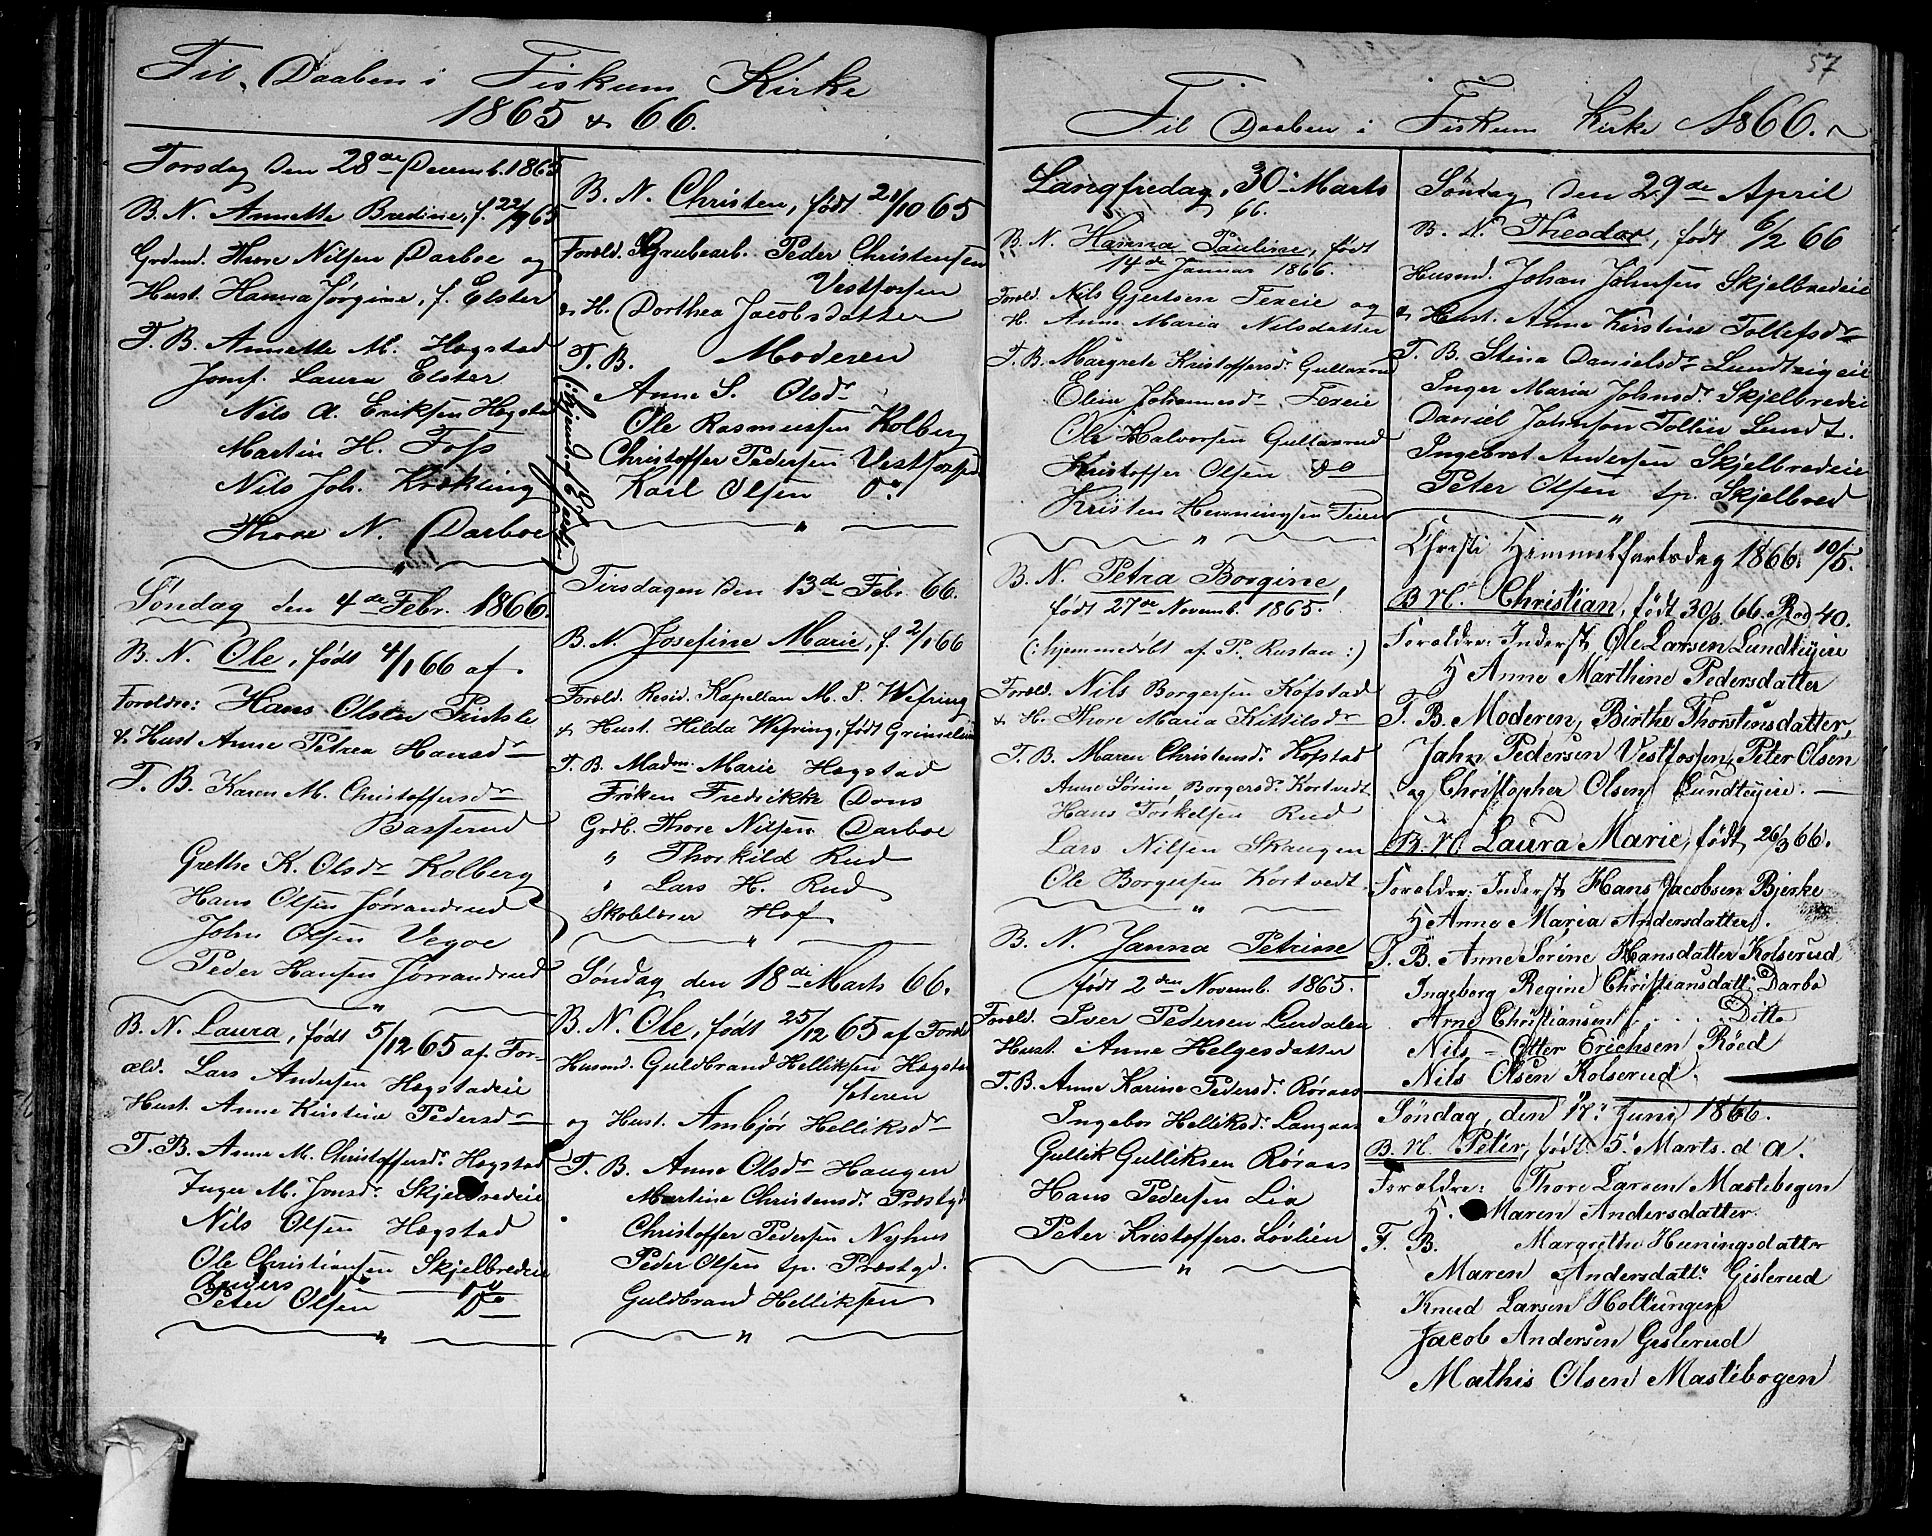 Til Daaben i Fiskum Kirke
1865 & 66.
Torsdag den 28de Decemb. 1865
B. N. Annette Bredine, f. 22/9 65
Grdmd. Thore Nilsen Darboe og
Hust. Hanna Jørgine, f. Elster
F. B. Annette M. Hægstad
Jomf. Laura Elster
Nils A. Eriksen Hægstad
Martin H. Foss
Nils Joh. Krekling
Thore N. Darboe
Søndag den 4de Febr. 1866.
B. N. Ole, født 4/1 66 af
Foreldre: Hans Olsen
& Hust Anne Petrea Hansdr
F. B. Karen M. Christoffersdr
Basserud
Grethe K. Olsdr Kolberg
Hans Olsen Jørrandrud
John Olsen Vegoe
Peder Hansen Jørrandrud
B. N. Laura, født 5/12 65 af For-
æld. Lars Andersen Hægstadeie
Hust. Anne Kirstine Pedersdr
F. B. Anne M. Christoffersdr. Hægstad
Inger M. Jonsdr. Skjelbredeie
Nils Olsen Hægstad
Ole Christiansen Skjelbredeie
Anders Do
Peter Olsen Do
B. N. Christen, født 21/10 65
Forold. Grubearb. Peder Christensen
Vestfossen
& H. Dorthea Jacobsdatter
F. B. Moderen
Anne S. Olsdr
Ole Rasmussen Kolberg
Christoffer Pedersen Vestfossen
Karl Olsen Do
Tirsdagen den 13de Febr. 66.
B. N. Josefine Marie, f. 2/1 66
Forold. Resid. Kapellan M. S. Wefring
& Hust. Hilda Wefring, født Grimelund
F. B. Madm. Marie Hægstad
Frøken Fredrikke Dons
Grdb. Thore Nilsen Darboe
" Thorkild Rud
" Lars H. Rud
Skolelærer Hof
Søndag den 18de Marts 66.
B. N. Ole, født 25/12 65 af Forold
Husmd. Guldbrand Helliksen Hægstad
og Hust. Ambjør Helliksdr
F. B. Anne Olsdr Haugen
Martine Christensdr. Præstgd
Christoffer Pedersen Nyhus
Peder Olsen tp. Præstgd.
Guldbrand Helliksen
57
Til Daaben i Fiskum Kirke 1866.
Langfredag, 30 Marts
66.
B. N. Hanna Pauline, født
14de Januar 1866.
Forold. Nils Gjertsen Tereie og
H. Anne Maria Nilsdatter
F. B. Margrete Kristoffersdr. Gullaxrud
Elen Johannesdr Tereie
Ole Halvorsen Gullaxrud
Kristoffer Olsen do
Kristen Henningsen
B. N. Petra Borgine,
født 27de Novemb. 1865.
(: hjemmedøbt af P. Rustan :)
Forold. Nils Borgersen Kofstad
& H. Thore Maria Kittilsdr
F. B. Maren Christensdr. Hofstad
Anne Sørine Borgersdr. Kortvedt
Hans Torkelsen Rud
Lars Nilsen Skaugen
Ole Borgersen Kortvedt
B. N. Janna Petrine
født 2den Novemb. 1865.
Forold. Iver Pedersen Lurdalen
Hust. Anne Helgesdatter
F. B. Anne Karine Pedersdr. Røraas
Ingebor Helliksdr. Langaas
Gullik Gulliksen Røraas
Hans Pedersen Lia
Peter Kristoffers. Løvlien
Søndag den 29de April
B. N. Theodor, født 6/2 66
Husmd. Johan Johnsen Skjelbredeie
& Hust. Anne Kirstine Tollefsdr
F. B. Stina Danielsdr Lundteigeie
Inger Maria Johnsdr. Skjelbredeie
Daniel Johnson Tollin Lundt.
Ingebret Andersen Skjelbredeie
Peter Olsen tp. Skjelbred
Christi Himmelfartsdag 1866. 10/5.
B. N. Christian, født 30/3 66. Rod 40.
Foroldre: Inderst Ole Larsen Lundteyeie
H Anne Marthine Pedersdatter
F. B. Moderen, Birthe Thorstensdatter,
Jahn Pedersen Vestfossen, Peter Olsen
og Christopher Olsen Lundteyeie.
B. N. Laura Marie, født 26/3 66.
Foroldre: Inderst Hans Jacobsen Bjerke
H Anne Maria Andersdatter.
F. B. Anne Sørine Hansdatter Kolserud
Ingeborg Regine Christiansdatt. Darbo
Arne Christiansen . . . . Ditto
Nils - Otter Erichsen Røed
Nils Olsen Kolserud.
Søndag, den 17. Juni 1866.
B. N. Peter, født 5. Marts. d. A.
Foroldre: Thore Larsen Mastebogen
H. Maren Andersdatter.
F. B. Margrethe Henningsdatter
Maren Andersdattr. Gislerud
Knud Larsen Holtungen
Jacob Andersen Gislerud
Mathis Olsen Mastebogen